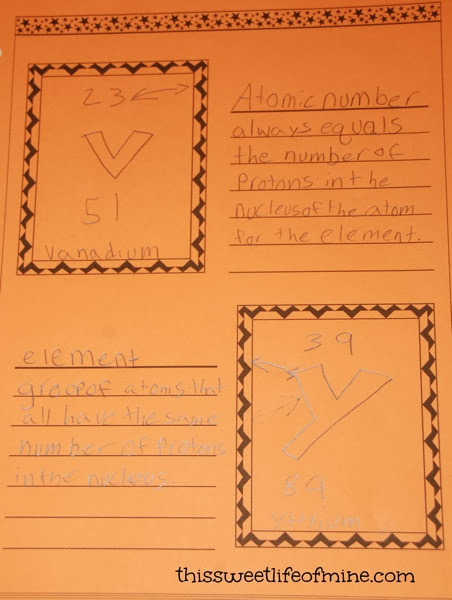 23
V
51
vanadium
Atomic number
always equals
the number of
Protons in the
nucleus of the atom
for the element.
element
group of atoms that
all have the same
number of Protons
in the nucleus
39
Y
84
thissweetlifeofmine.com